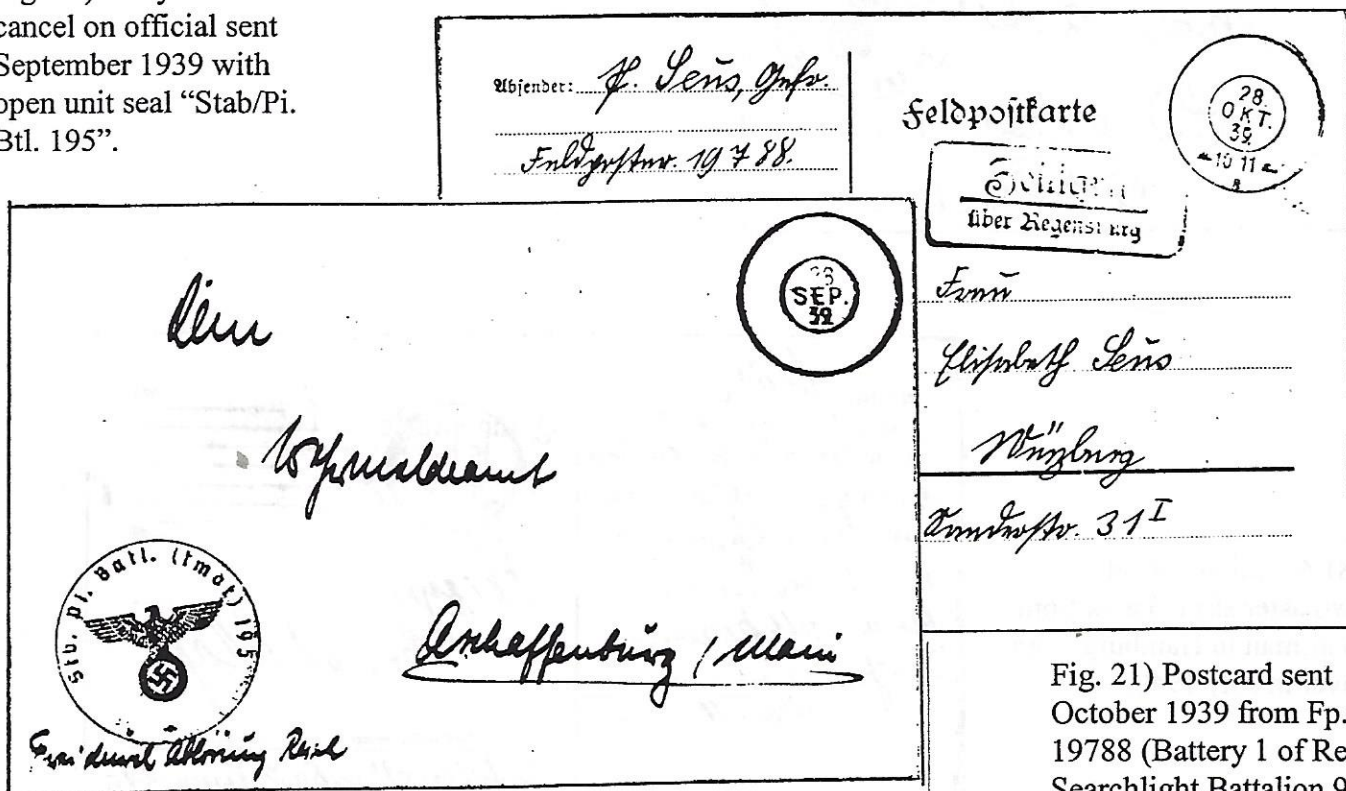 cancel on official sent
September 1939 with
open unit seal “Stab/Pi.
Btl. 195”.
Absender: P. Seüs, Gefr.
Feldpostnr. 19788.
Feldpostkarte
28.
OKT.
39.
10 11
über Regensburg
Frau
Elisabeth Seüs
Würzburg
Sanderstr. 31 I
SEP.
39
Dem
Wehrmeldeamt
Aschaffenbürg / Main
Stb. Pi. Batl. (tmot) 195
Frei durch Ablösüng Reich
Fig. 21) Postcard sent
October 1939 from Fp.
19788 (Battery 1 of Re
Searchlight Battalion 9